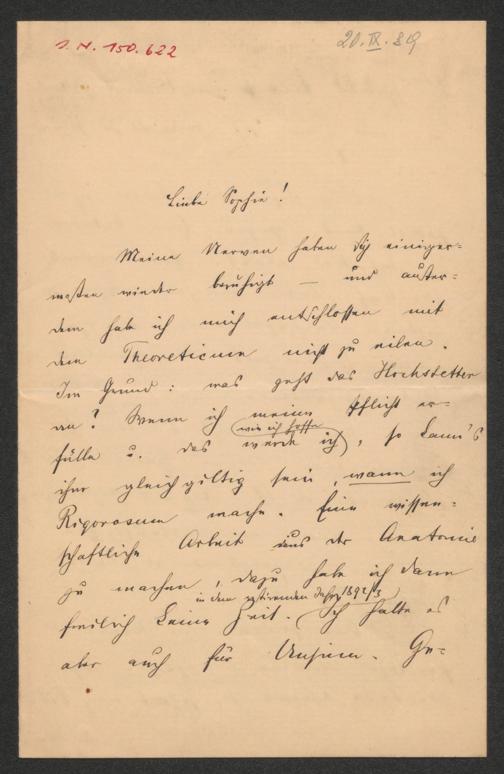 J. N. 150.622
20. IX. 89
Liebe Sophie!
Meine Nerven haben sich einiger=
maßen wieder beruhigt — und außer=
dem habe ich mich entschlossen mit
dem Theoreticum nicht zu eilen.
Im Grund: was geht das Hochstetter
an? Wenn ich meine Pflicht er=
(wie ich hoffe)
fülle u. das werde ich, so kann's
ihm gleichgiltig sein, wann ich
Rigorosum mache. Eine wissen=
schaftliche Arbeit aus der Anatomie
zu machen, dazu habe ich dann
in dem Jahr 1892/3
freilich keine Zeit. Ich halte es
aber auch für Unsinn. Ge=